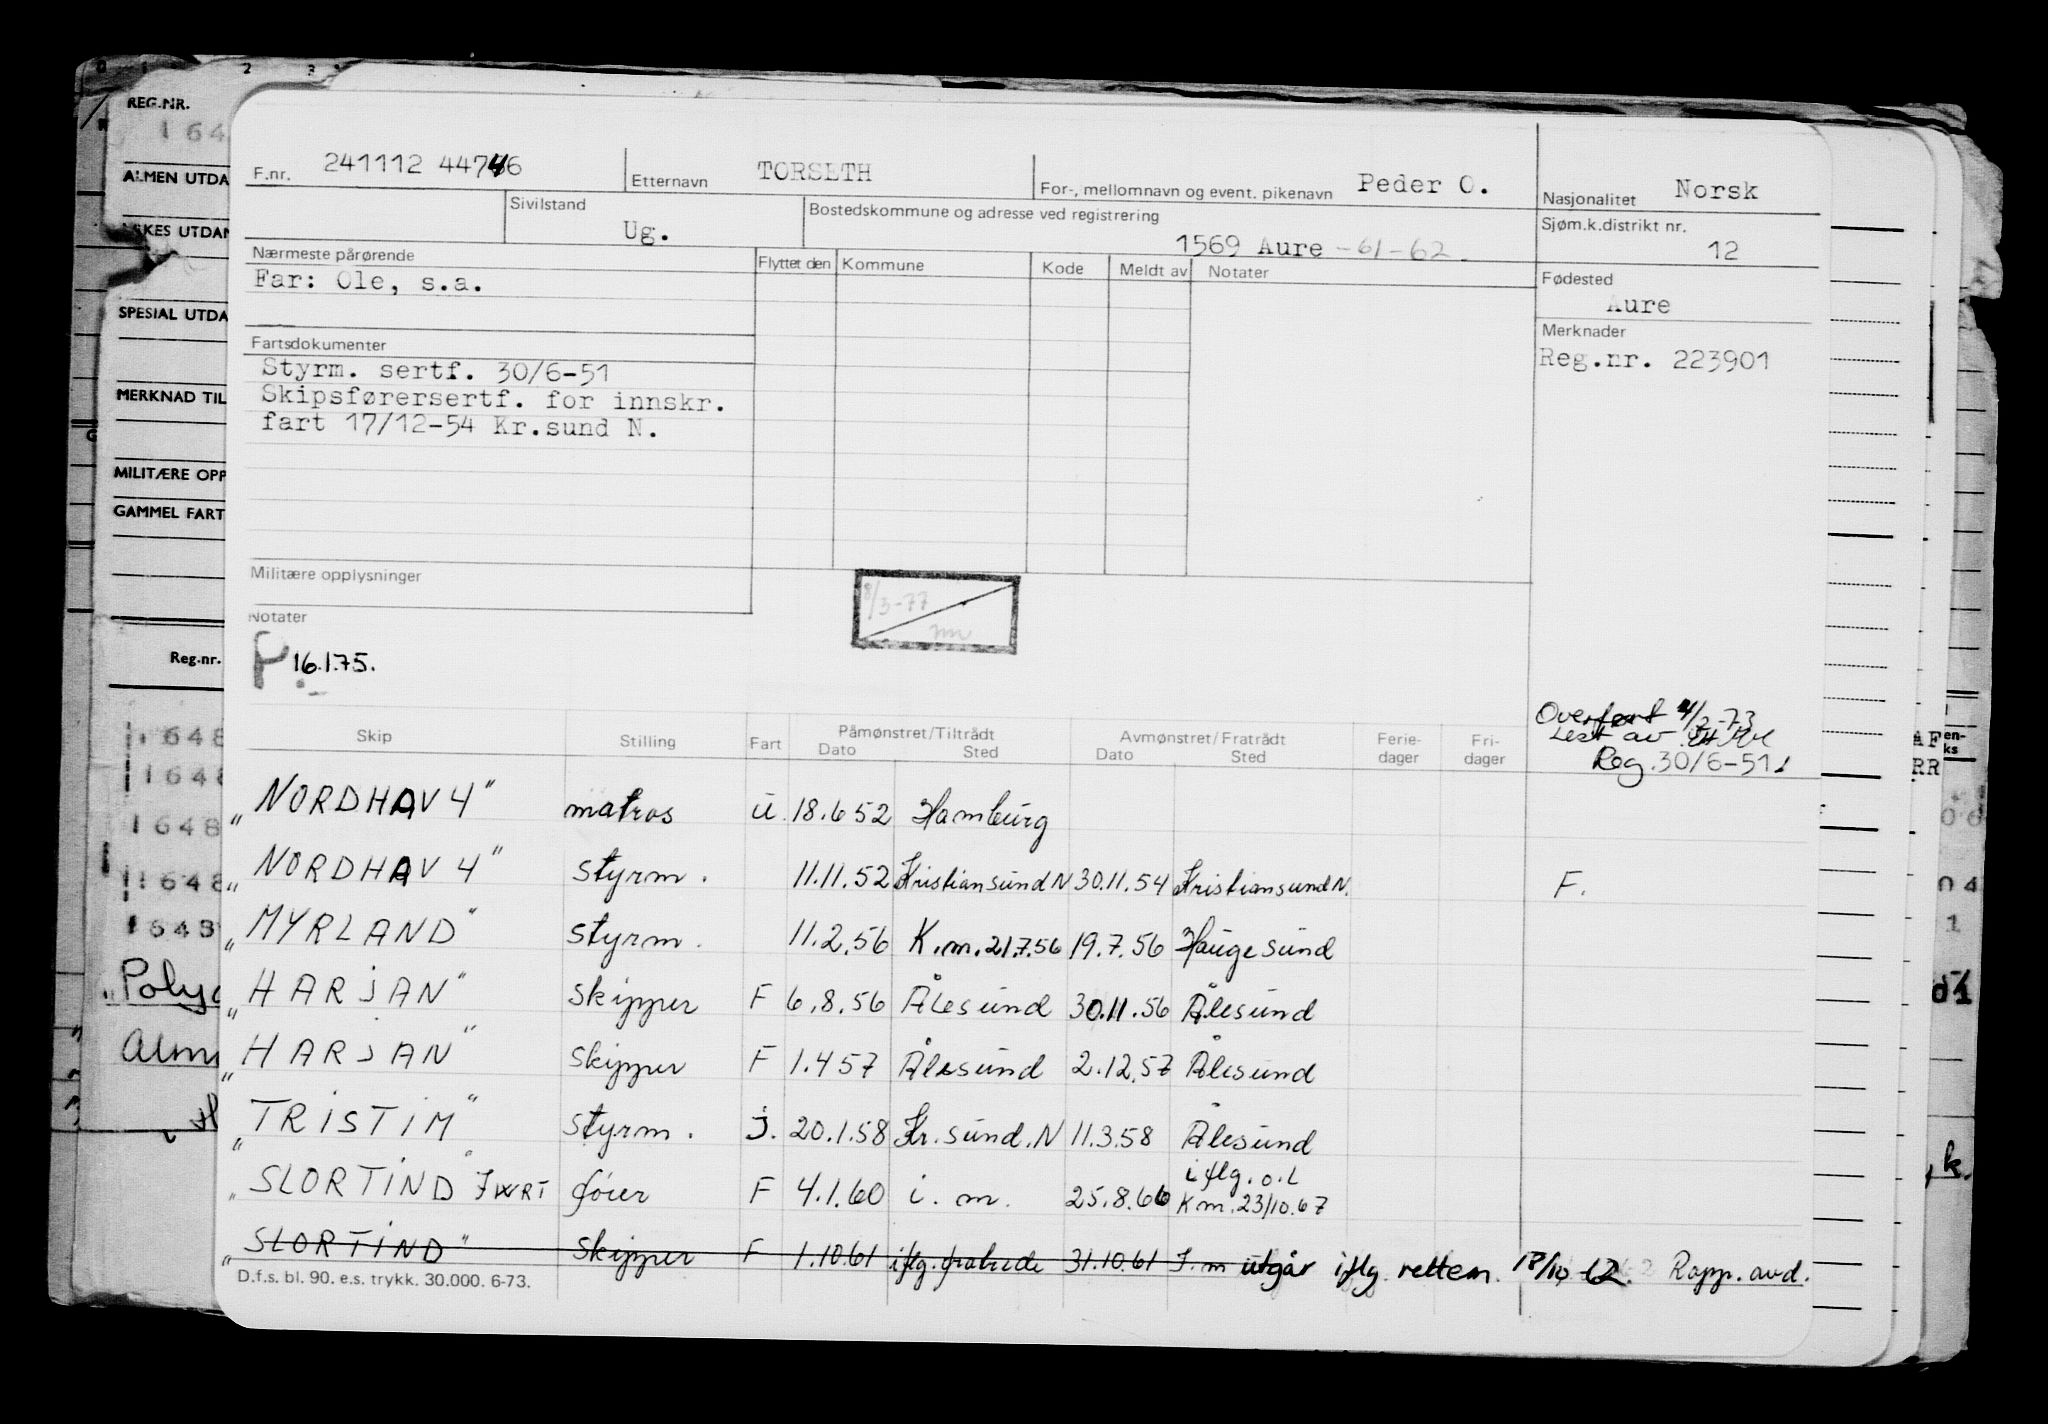 REG.NR.
164
ALMEN UTDA
SPESIAL UTDA
MERKNAD TIL
MILITÆRE OPP
GAMMEL FART
Reg.nr.
1648
1648
1648
1648
F.nr. 241112 44746 Etternavn TORSETH For-, mellomnavn og event. pikenavn Peder O. Nasjonalitet Norsk
Sivilstand Ug. Bostedskommune og adresse ved registrering 1569 Aure -61-62. Sjøm.k.distrikt nr. 12
Nærmeste pårørende Flyttet den Kommune Kode Meldt av Notater Fødested
Far: Ole, s.a. Aure
Fartsdokumenter Merknader
Styrm. sertf. 30/6-51 Reg.nr. 223901
Skipsførersertf. for innskr.
fart 17/12-54 Kr.sund N.
Militære opplysninger
8/3-77
Notater
P 16.1.75.
Overført 4/2-73
Lest av
Reg. 30/6-51
Skip Stilling Fart Påmønstret/Tiltrådt Avmønstret/Fratrådt Ferie- Fri-
Dato Sted Dato Sted dager dager
„NORDHAV 4" matros u. 18.6 52 Hamburg
„NORDHAV 4" styrm. 11.11.52 Kristiansund N 30.11.54 Kristiansund N. F.
„MYRLAND" styrm. 11.2.56 K.m. 21.7.56 19.7.56 Haugesund
„HARJAN" skipper F 6.8.56 Ålesund 30.11.56 Ålesund
„HARJAN" skipper F 1.4 57 Ålesund 2.12.57 Ålesund
„TRISTIM" styrm. j. 20.1.58 Kr.sund.N 11.3.58 Ålesund
„SLORTIND" fører F 4.1.60 i.m. 25.8.66 iflg.o.l
Km.23/10.67
„SLORTIND" skipper F 1.10.61 iflg. fratrede 31.10.61 I.m utgår iflg. rettem. 18/10 62. Rapp.avd.
D.f.s. bl. 90. e.s. trykk. 30.000. 6-73.